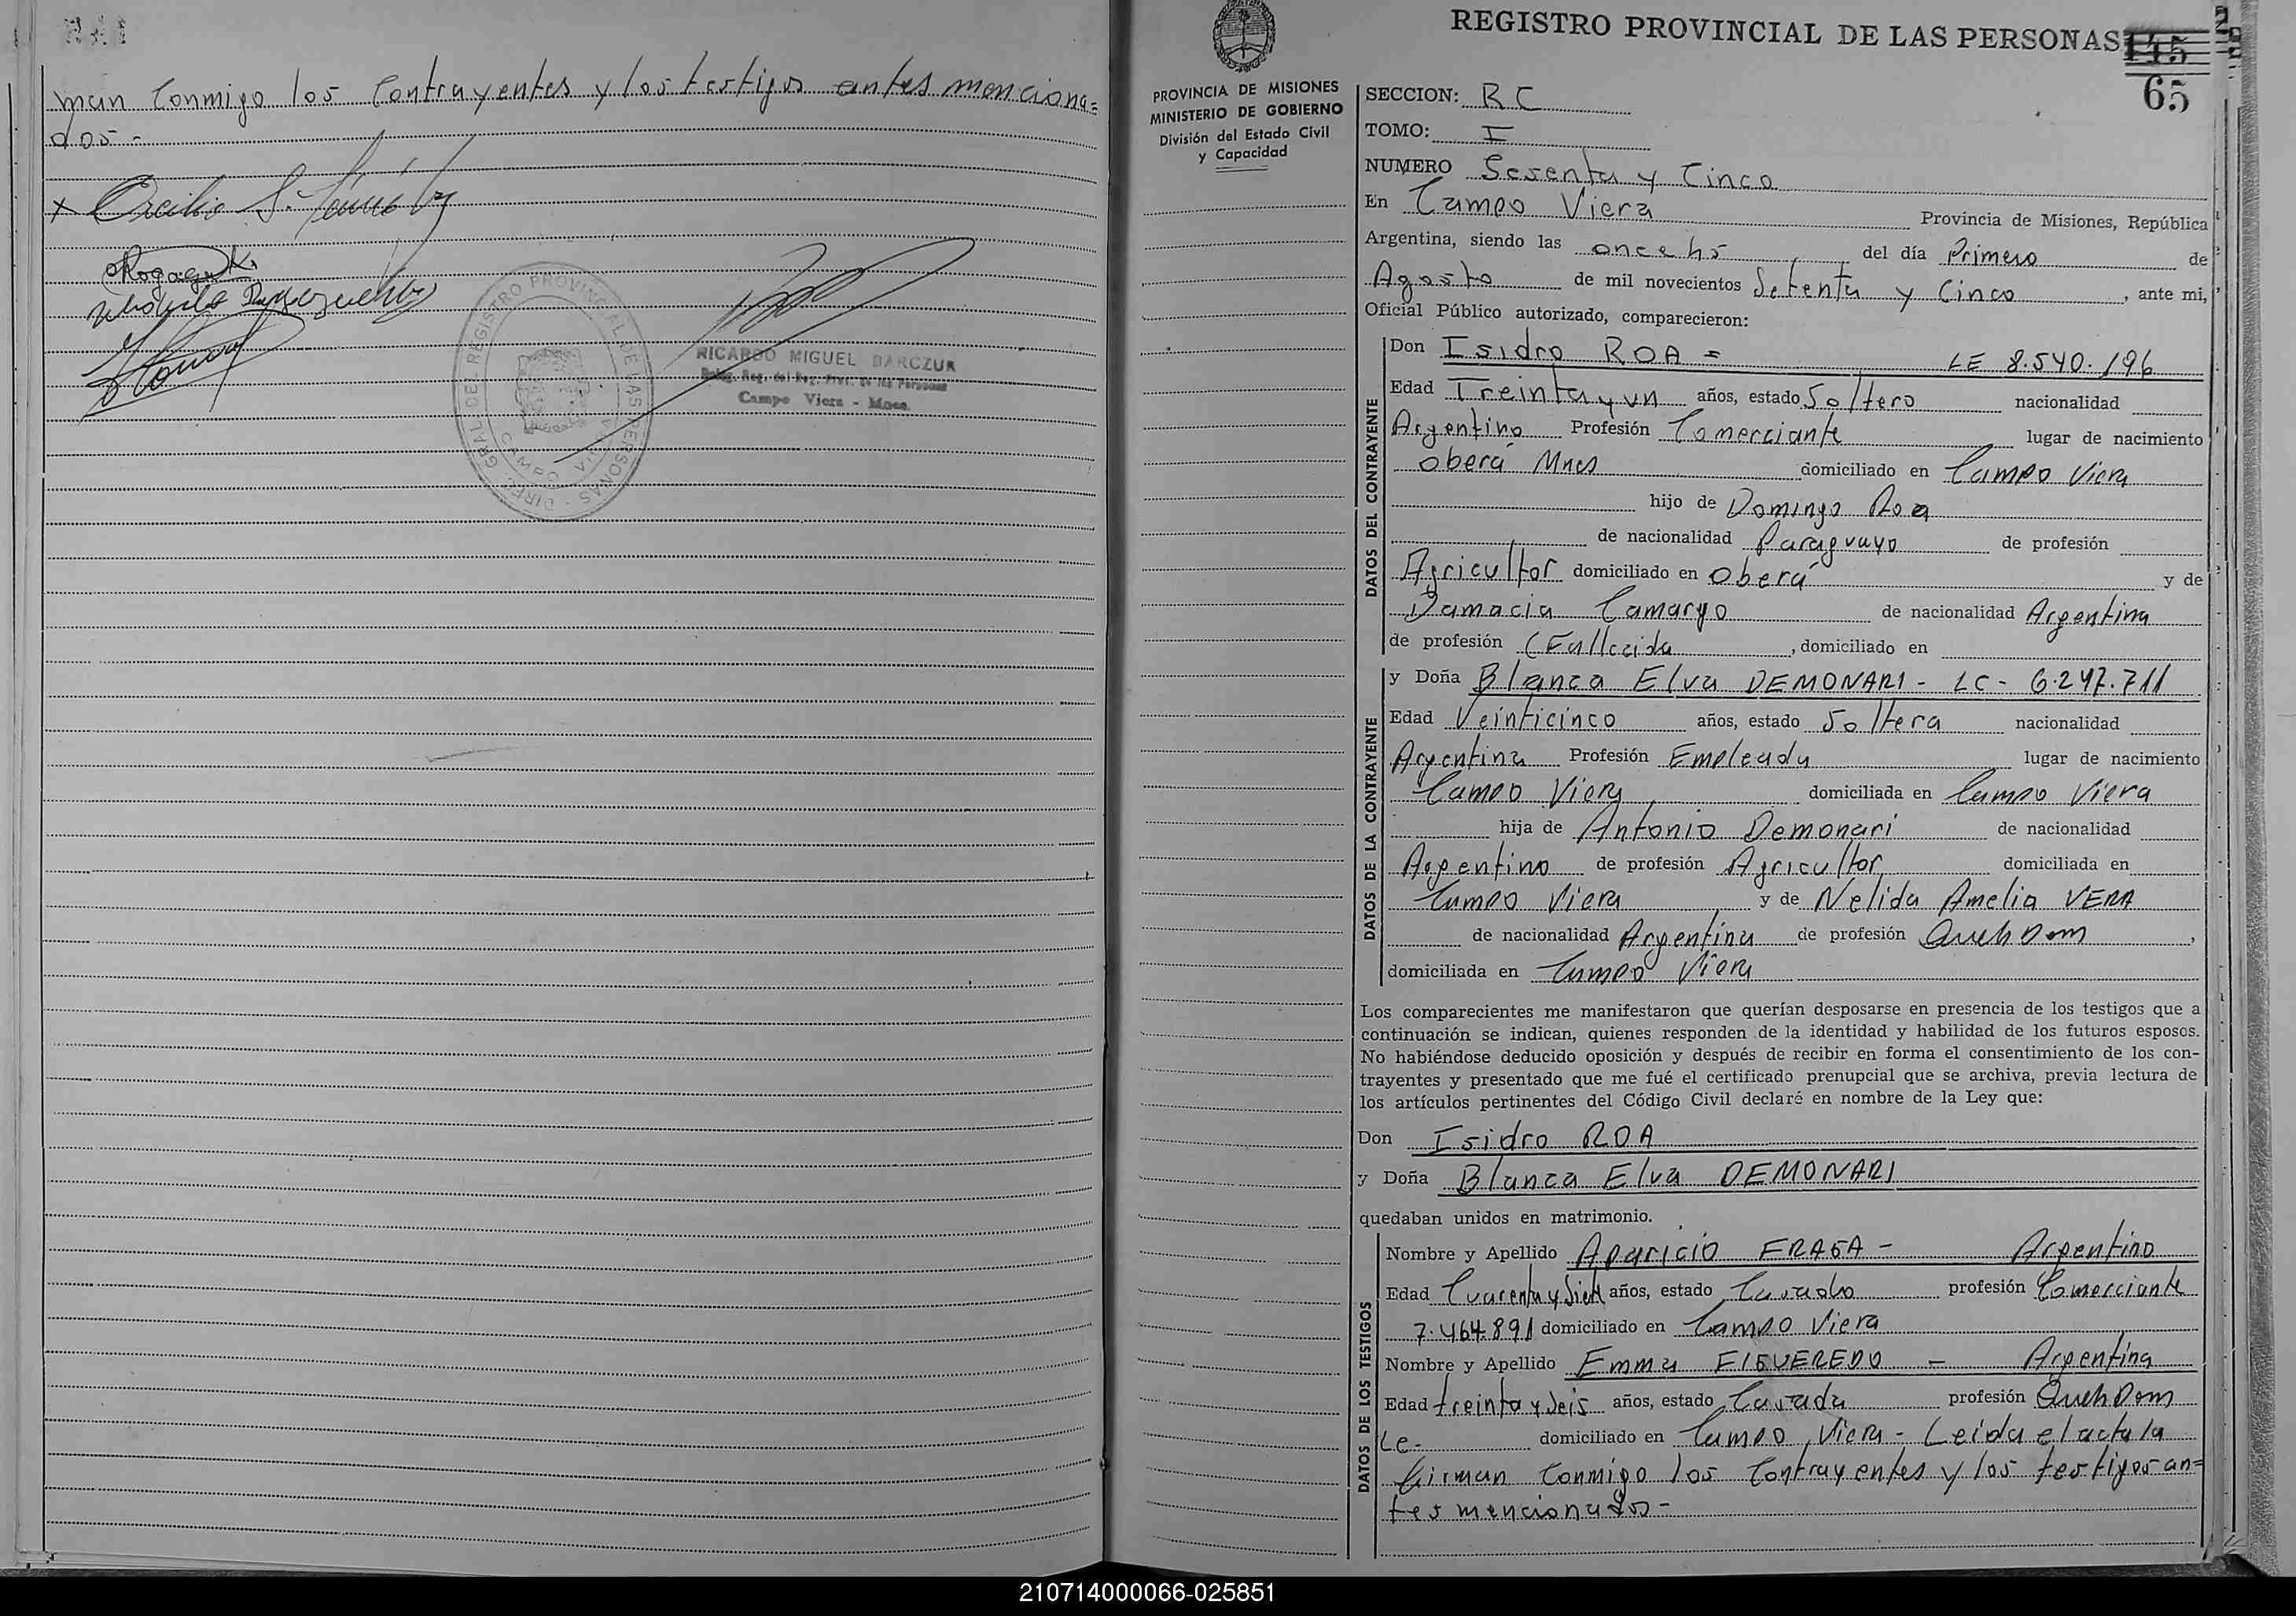 man conmigo los contrayentes y los testigos antes menciona=
dos -
RICARDO MIGUEL BARCZUK
Deleg. Reg. del Reg. Prov. de las Personas
Campo Viera - Mnes.
DIREC. GRAL DEL REGISTRO PROVINCIAL DE LAS PERSONAS
CAMPO VIERA
REGISTRO PROVINCIAL DE LAS PERSONAS
145
65
PROVINCIA DE MISIONES
MINISTERIO DE GOBIERNO
División del Estado Civil
y Capacidad
SECCION: RC
TOMO: I
NUMERO Sesenta y Cinco
En Campo Viera Provincia de Misiones, República
Argentina, siendo las once hs del día Primero de
Agosto de mil novecientos Setenta y Cinco, ante mi,
Oficial Público autorizado, comparecieron:
DATOS DEL CONTRAYENTE
Don Isidro ROA = LE 8.540.196
Edad Treinta y un años, estado Soltero nacionalidad
Argentino Profesión Comerciante lugar de nacimiento
Oberá Mnes domiciliado en Campo Viera
hijo de Domingo Roa
de nacionalidad Paraguayo de profesión
Agricultor domiciliado en Oberá y de
Damacia Camargo de nacionalidad Argentina
de profesión (Fallecida, domiciliado en
DATOS DE LA CONTRAYENTE
y Doña Blanca Elva DEMONARI - LC - 6.247.711
Edad Veinticinco años, estado Soltera nacionalidad
Argentina Profesión Empleada lugar de nacimiento
Campo Viera domiciliada en Campo Viera
hija de Antonio Demonari de nacionalidad
Argentino de profesión Agricultor domiciliada en
Campo Viera y de Nelida Amelia VERA
de nacionalidad Argentina de profesión Queh Dom,
domiciliada en Campo Viera
Los comparecientes me manifestaron que querían desposarse en presencia de los testigos que a
continuación se indican, quienes responden de la identidad y habilidad de los futuros esposos.
No habiéndose deducido oposición y después de recibir en forma el consentimiento de los con-
trayentes y presentado que me fué el certificado prenupcial que se archiva, previa lectura de
los artículos pertinentes del Código Civil declaré en nombre de la Ley que:
Don Isidro ROA
y Doña Blanca Elva DEMONARI
quedaban unidos en matrimonio.
DATOS DE LOS TESTIGOS
Nombre y Apellido Aparicio FRAGA - Argentino
Edad Cuarenta y Siete años, estado Casado profesión Comerciante
7.464.891 domiciliado en Campo Viera
Nombre y Apellido Emma FIGUEREDO - Argentina
Edad treinta y Seis años, estado Casada profesión Queh Dom
Le- domiciliado en Campo Viera - Leida el acta la
firman conmigo los contrayentes y los testigos an=
tes mencionados -
210714000066-025851